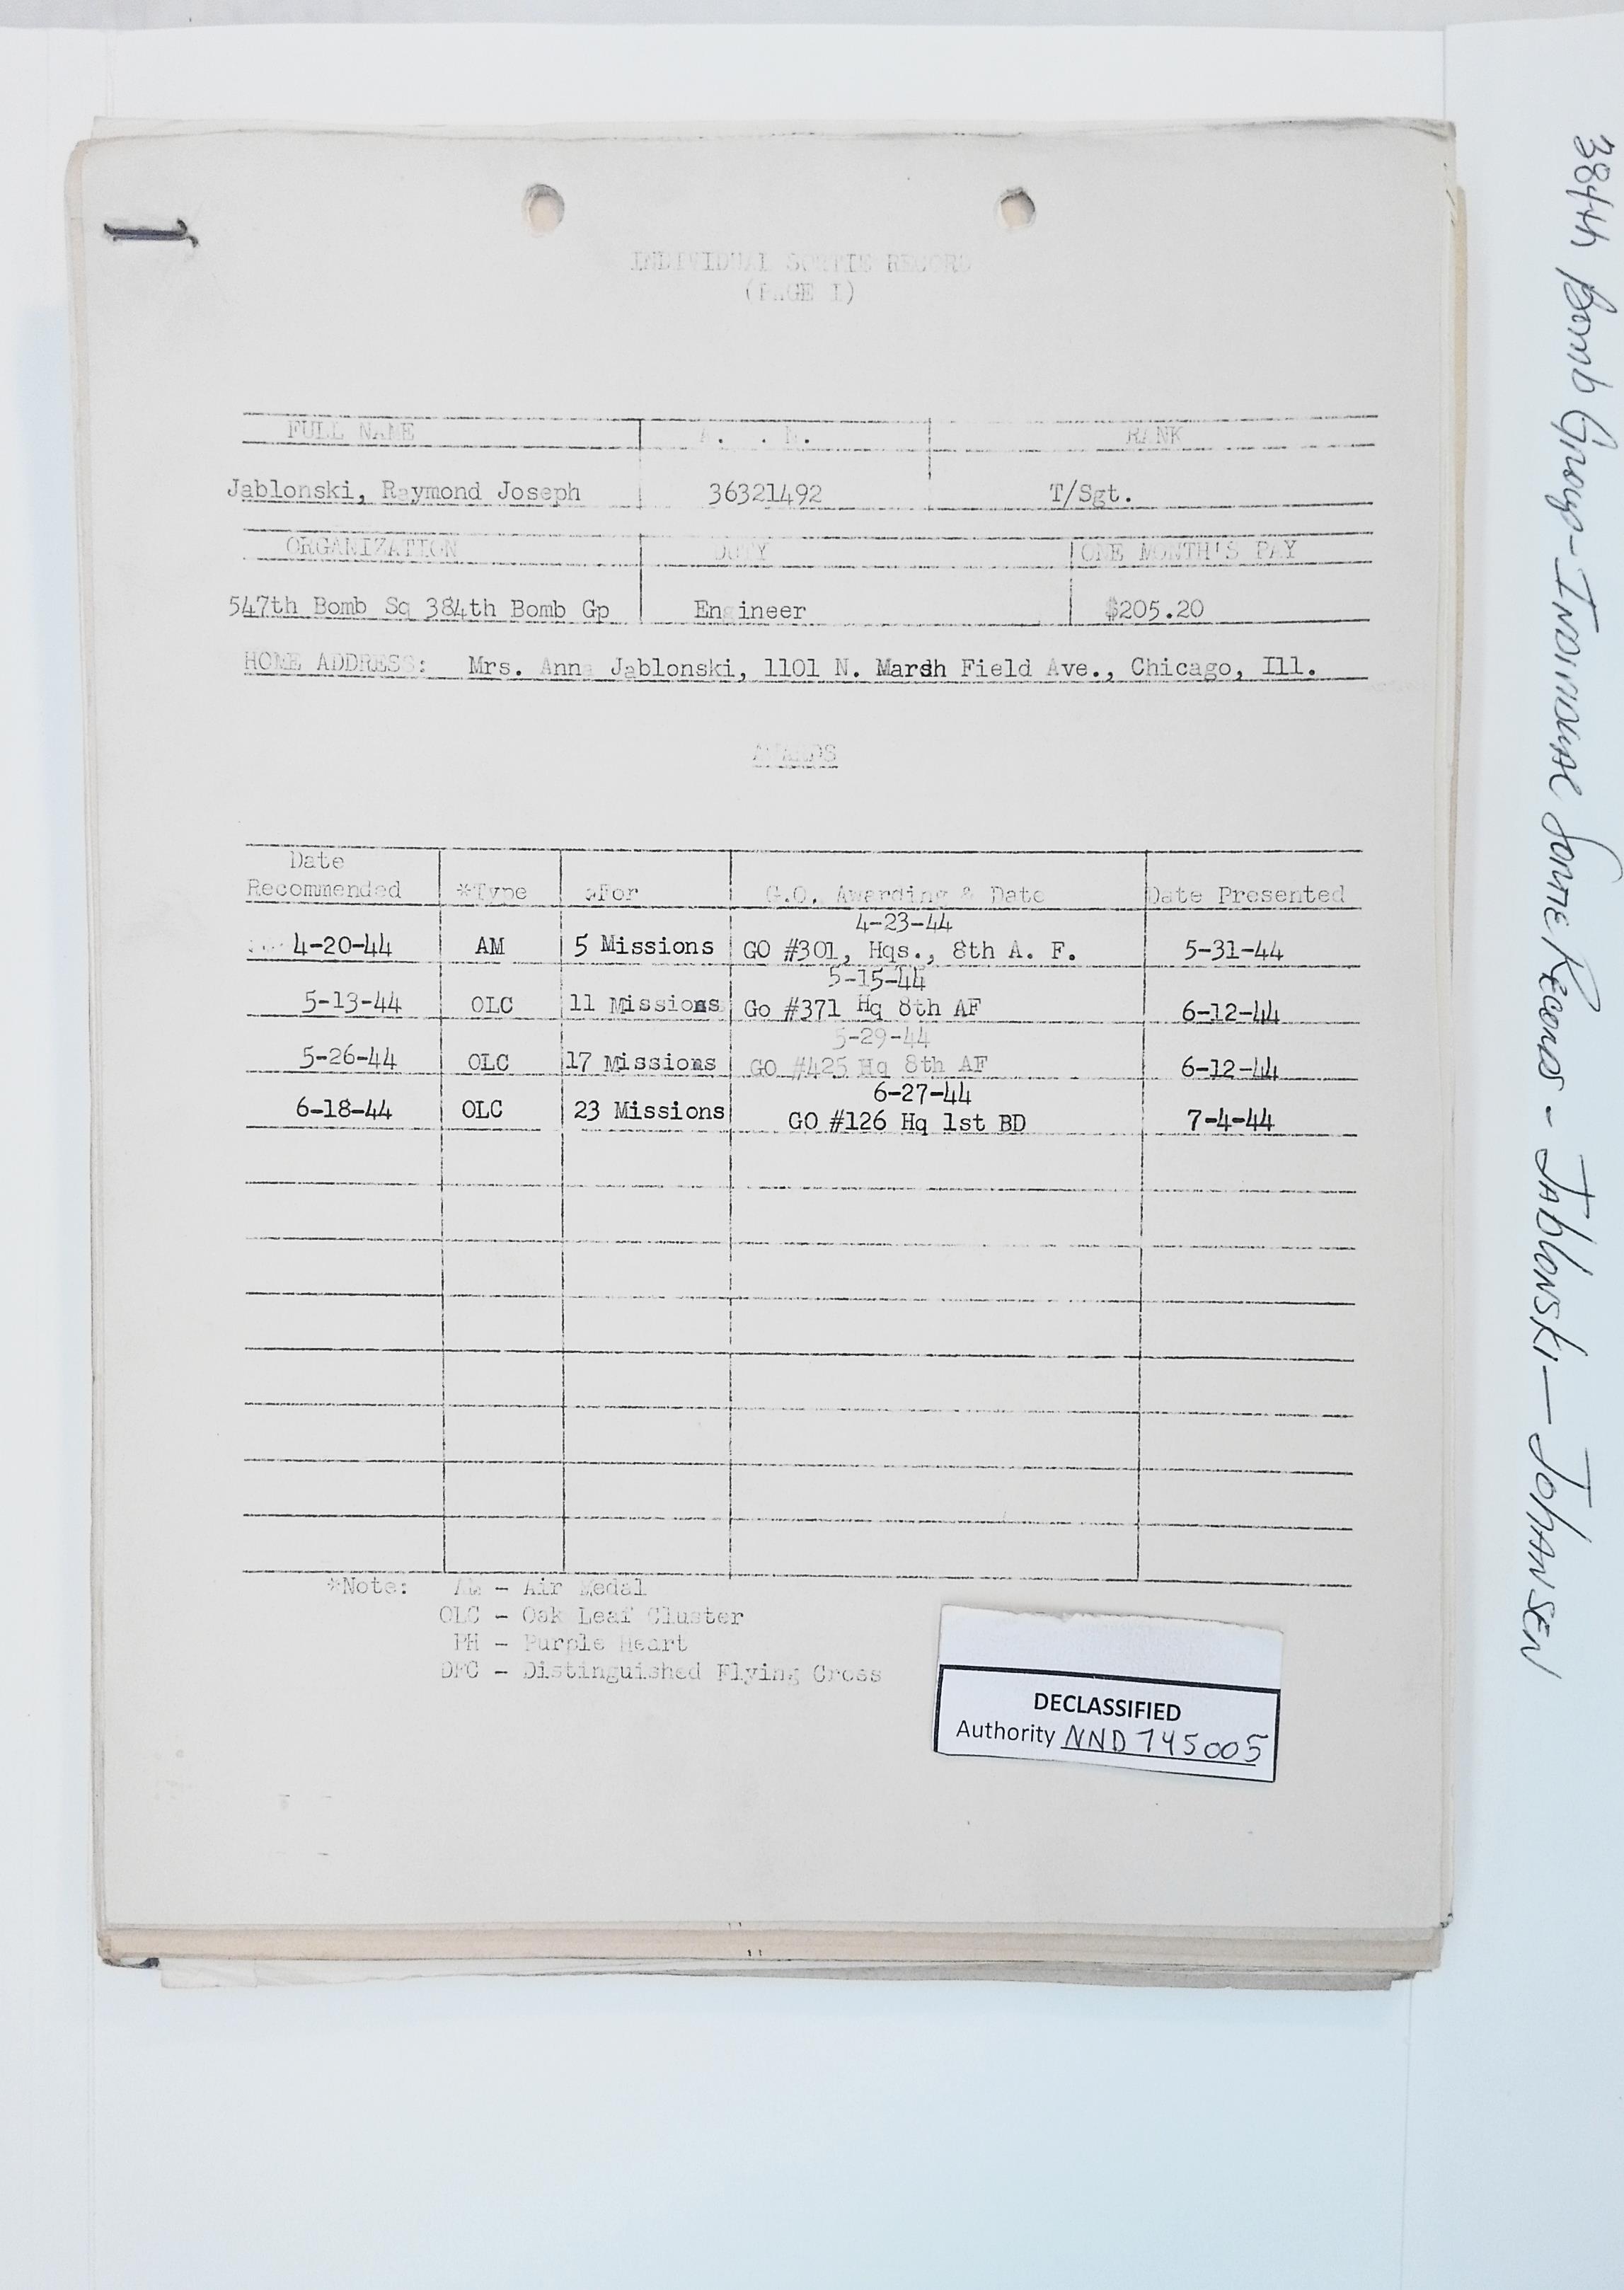 INDIVIDUAL SORTIE RECORD
(PAGE I)
FULL NAME A. . N. RANK
Jablonski, Raymond Joseph 36321492 T/Sgt.
ORGANIZATION DUTY ONE MONTH'S PAY
547th Bomb Sq 384th Bomb Gp Engineer $205.20
HOME ADDRESS: Mrs. Anna Jablonski, 1101 N. Marsh Field Ave., Chicago, Ill.
AWARDS
Date
Recommended *Type *For G.O. Awarding & Date Date Presented
4-23-44
4-20-44 AM 5 Missions GO #301, Hqs., 8th A. F. 5-31-44
5-15-44
5-13-44 OLC 11 Missions Go #371 Hq 8th AF 6-12-44
5-29-44
5-26-44 OLC 17 Missions GO #425 Hq 8th AF 6-12-44
6-27-44
6-18-44 OLC 23 Missions GO #126 Hq 1st BD 7-4-44
*Note: AM - Air Medal
OLC - Oak Leaf Cluster
PH - Purple Heart
DFC - Distinguished Flying Cross
DECLASSIFIED
Authority NND 745005
384th Bomb Group - Individual Sortie Records - Jablonski — Johansen